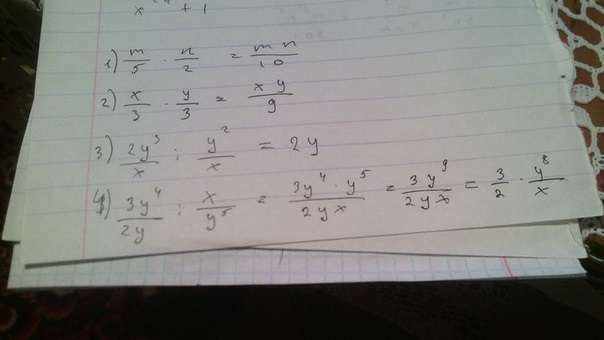 x + 1
1) m/5 · n/2 = mn/10
2) x/3 · y/3 = xy/9
3) 2y³/x : y²/x = 2y
4) 3y⁴/2y : x/y⁵ = 3y⁴ · y⁵/2yx = 3y⁹/2yx = 3/2 · y⁸/x